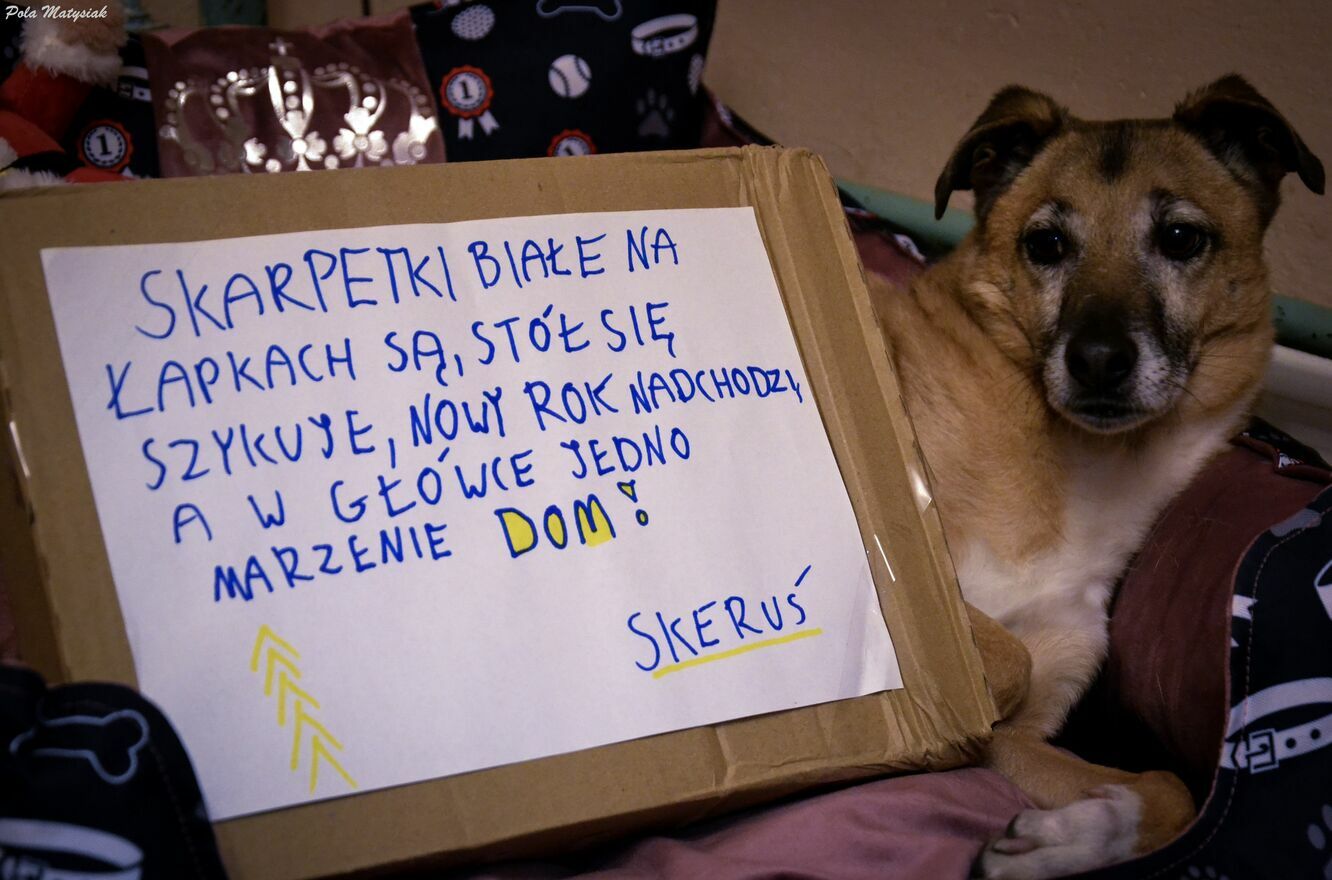 Pola Matysiak
1
1
SKARPETKI BIAŁE NA
ŁAPKACH SĄ, STÓŁ SIĘ
SZYKUJE, NOWY ROK NADCHODZI,
A W GŁÓWCE JEDNO
MARZENIE DOM!
SKERUŚ